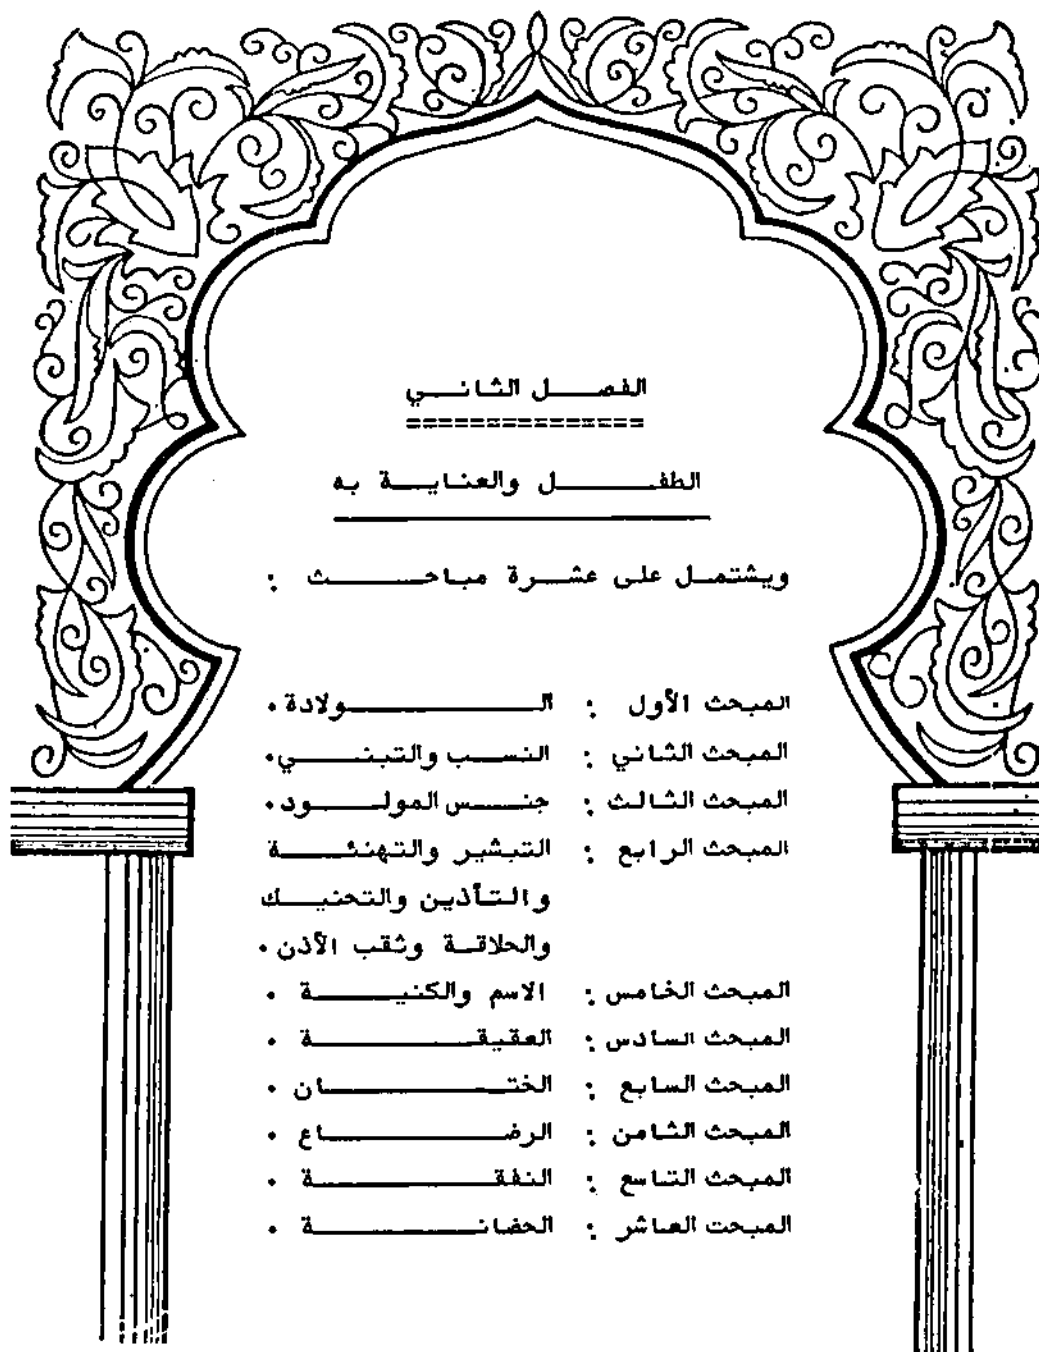 الفصل الثاني
الطفل والعناية به
ويشتمل على عشرة مباحث :
المبحث الأول : الولادة .
المبحث الثاني : النسب والتبني .
المبحث الثالث : جنس المولود .
المبحث الرابع : التبشير والتهنئة
والتأذين والتحنيك
والحلاقة وثقب الأذن .
المبحث الخامس : الاسم والكنية .
المبحث السادس : العقيقة .
المبحث السابع : الختان .
المبحث الثامن : الرضاع .
المبحث التاسع : النفقة .
المبحث العاشر : الحضانة .